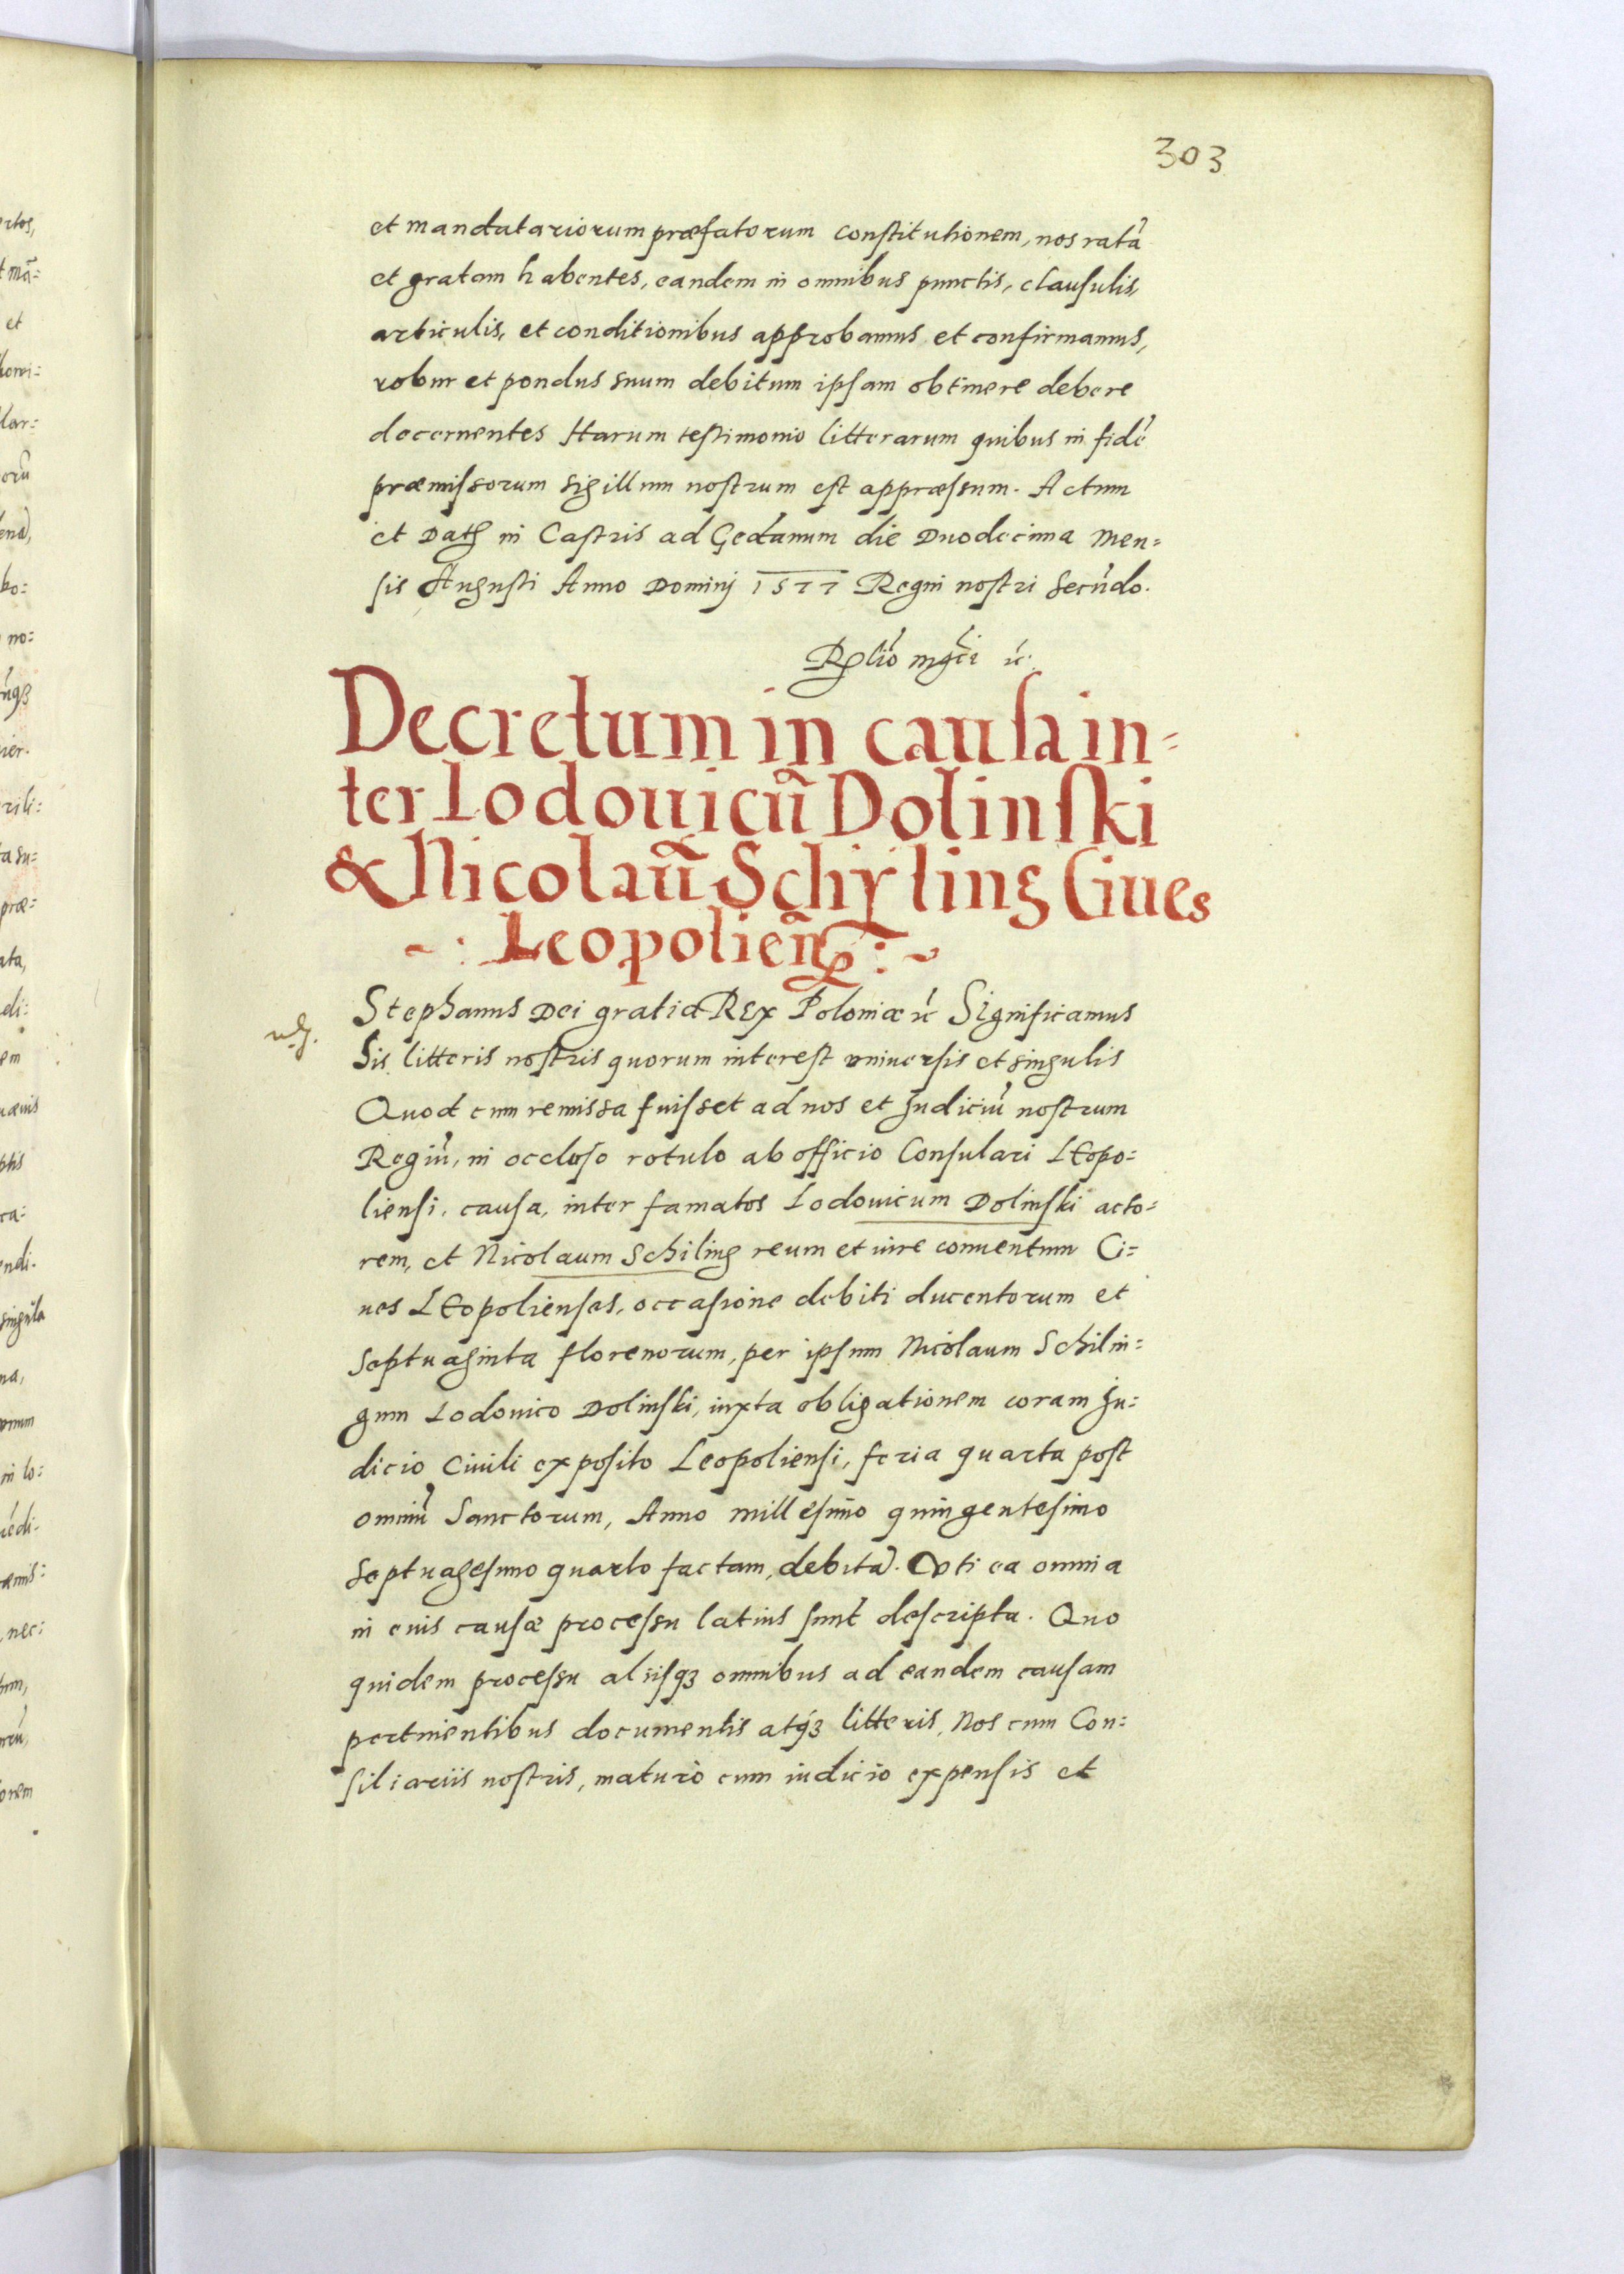 303
et mandatariorum præfatorum constitutionem, nos ratã
et gratam habentes, eandem in omnibus punctis, clausulis,
articulis, et conditionibus approbamus et confirmamus,
robur et pondus suum debitum ipsam obtinere debere
decernentes Harum testimonio litterarum quibus in fidẽ
præmissorum sigillum nostrum est appræssum. Actum
et Dat in Castris ad Gedanum die Duodecima Men=
sis Augusti Anno Dominj 1577 Regni nostri secũdo.
Decretum in causa in=
ter Lodouicũ Dolinski
& Nicolaũ Schyling Ciues
Leopolieñ
Stephanus Dei gratia REx Poloniæ Significamus
his litteris nostris quorum interest vniuersis et singulis
Quod cum remissa fuisset ad nos et Judiciũ nostrum
Regiũ, in occluso rotulo ab officio Consulari LEopo=
liensi, causa, inter famatos Lodouicum Dolinski acto=
rem, et Nicolaum Schiling reum et iure conuentum Ci=
ues LEopolienses, occasione debiti ducentorum et
septuaginta florenorum, per ipsum Nicolaum Schilin=
gum Lodouico Dolinski, iuxta obligationem coram Ju=
dicio Ciuili exposito Leopoliensi, feria quarta post
omniũ Sanctorum, Anno millesimo quingentesimo
septuagesimo quarto factam, debita). Vti ea omnia
in euis causæ processu latius sunt descripta. Quo
quidem processu alsisq3 omnibus ad eandem causam
pertinentibus documentis atq3 litteris, Nos cum Con=
siliariis nostris, maturo cum iudicio expensis et